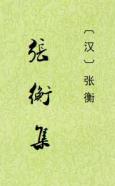 〔汉〕张衡
張衡集